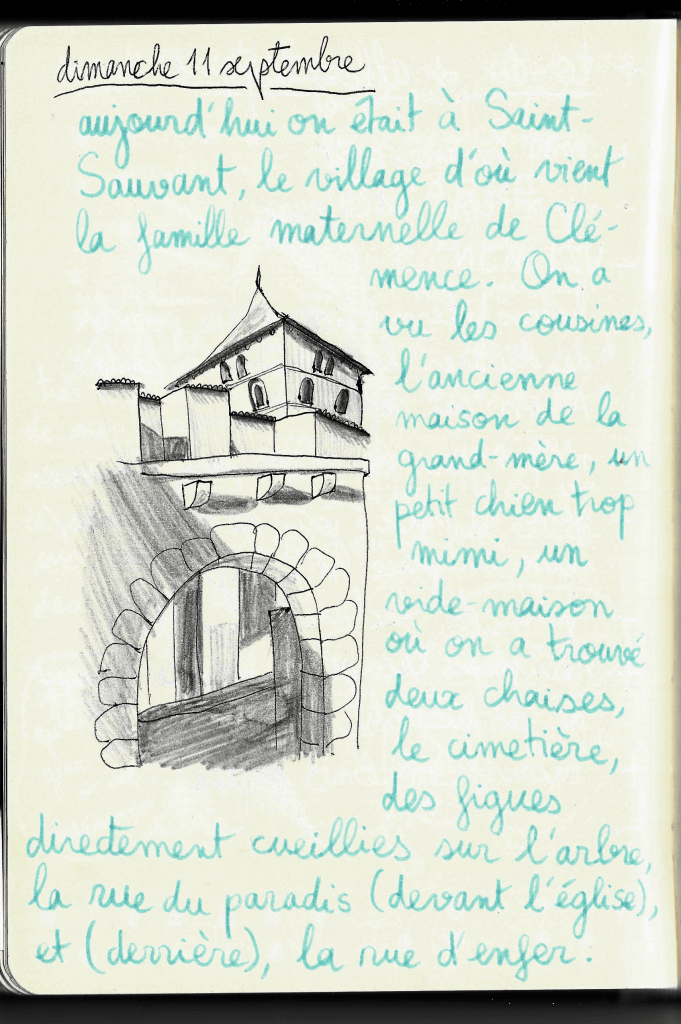 dimanche 11 septembre
aujourd'hui on était à Saint-
Sauvant, le village d'où vient
la famille maternelle de Clé-
mence. On a
vu les cousines,
l'ancienne
maison de la
grand-mère, un
petit chien trop
mimi, un
vide-maison
où on a trouvé
deux chaises,
le cimetière,
des figues
directement cueillies sur l'arbre,
la rue du paradis (devant l'église),
et (derrière), la rue d'enfer.